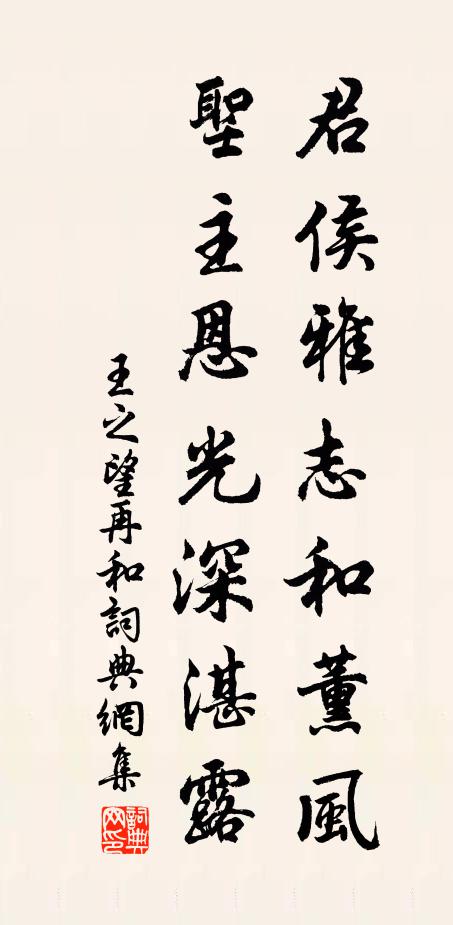 君侯雅志和薰風
聖主恩光深湛露
王之望再和詞典網集
詞典
网印